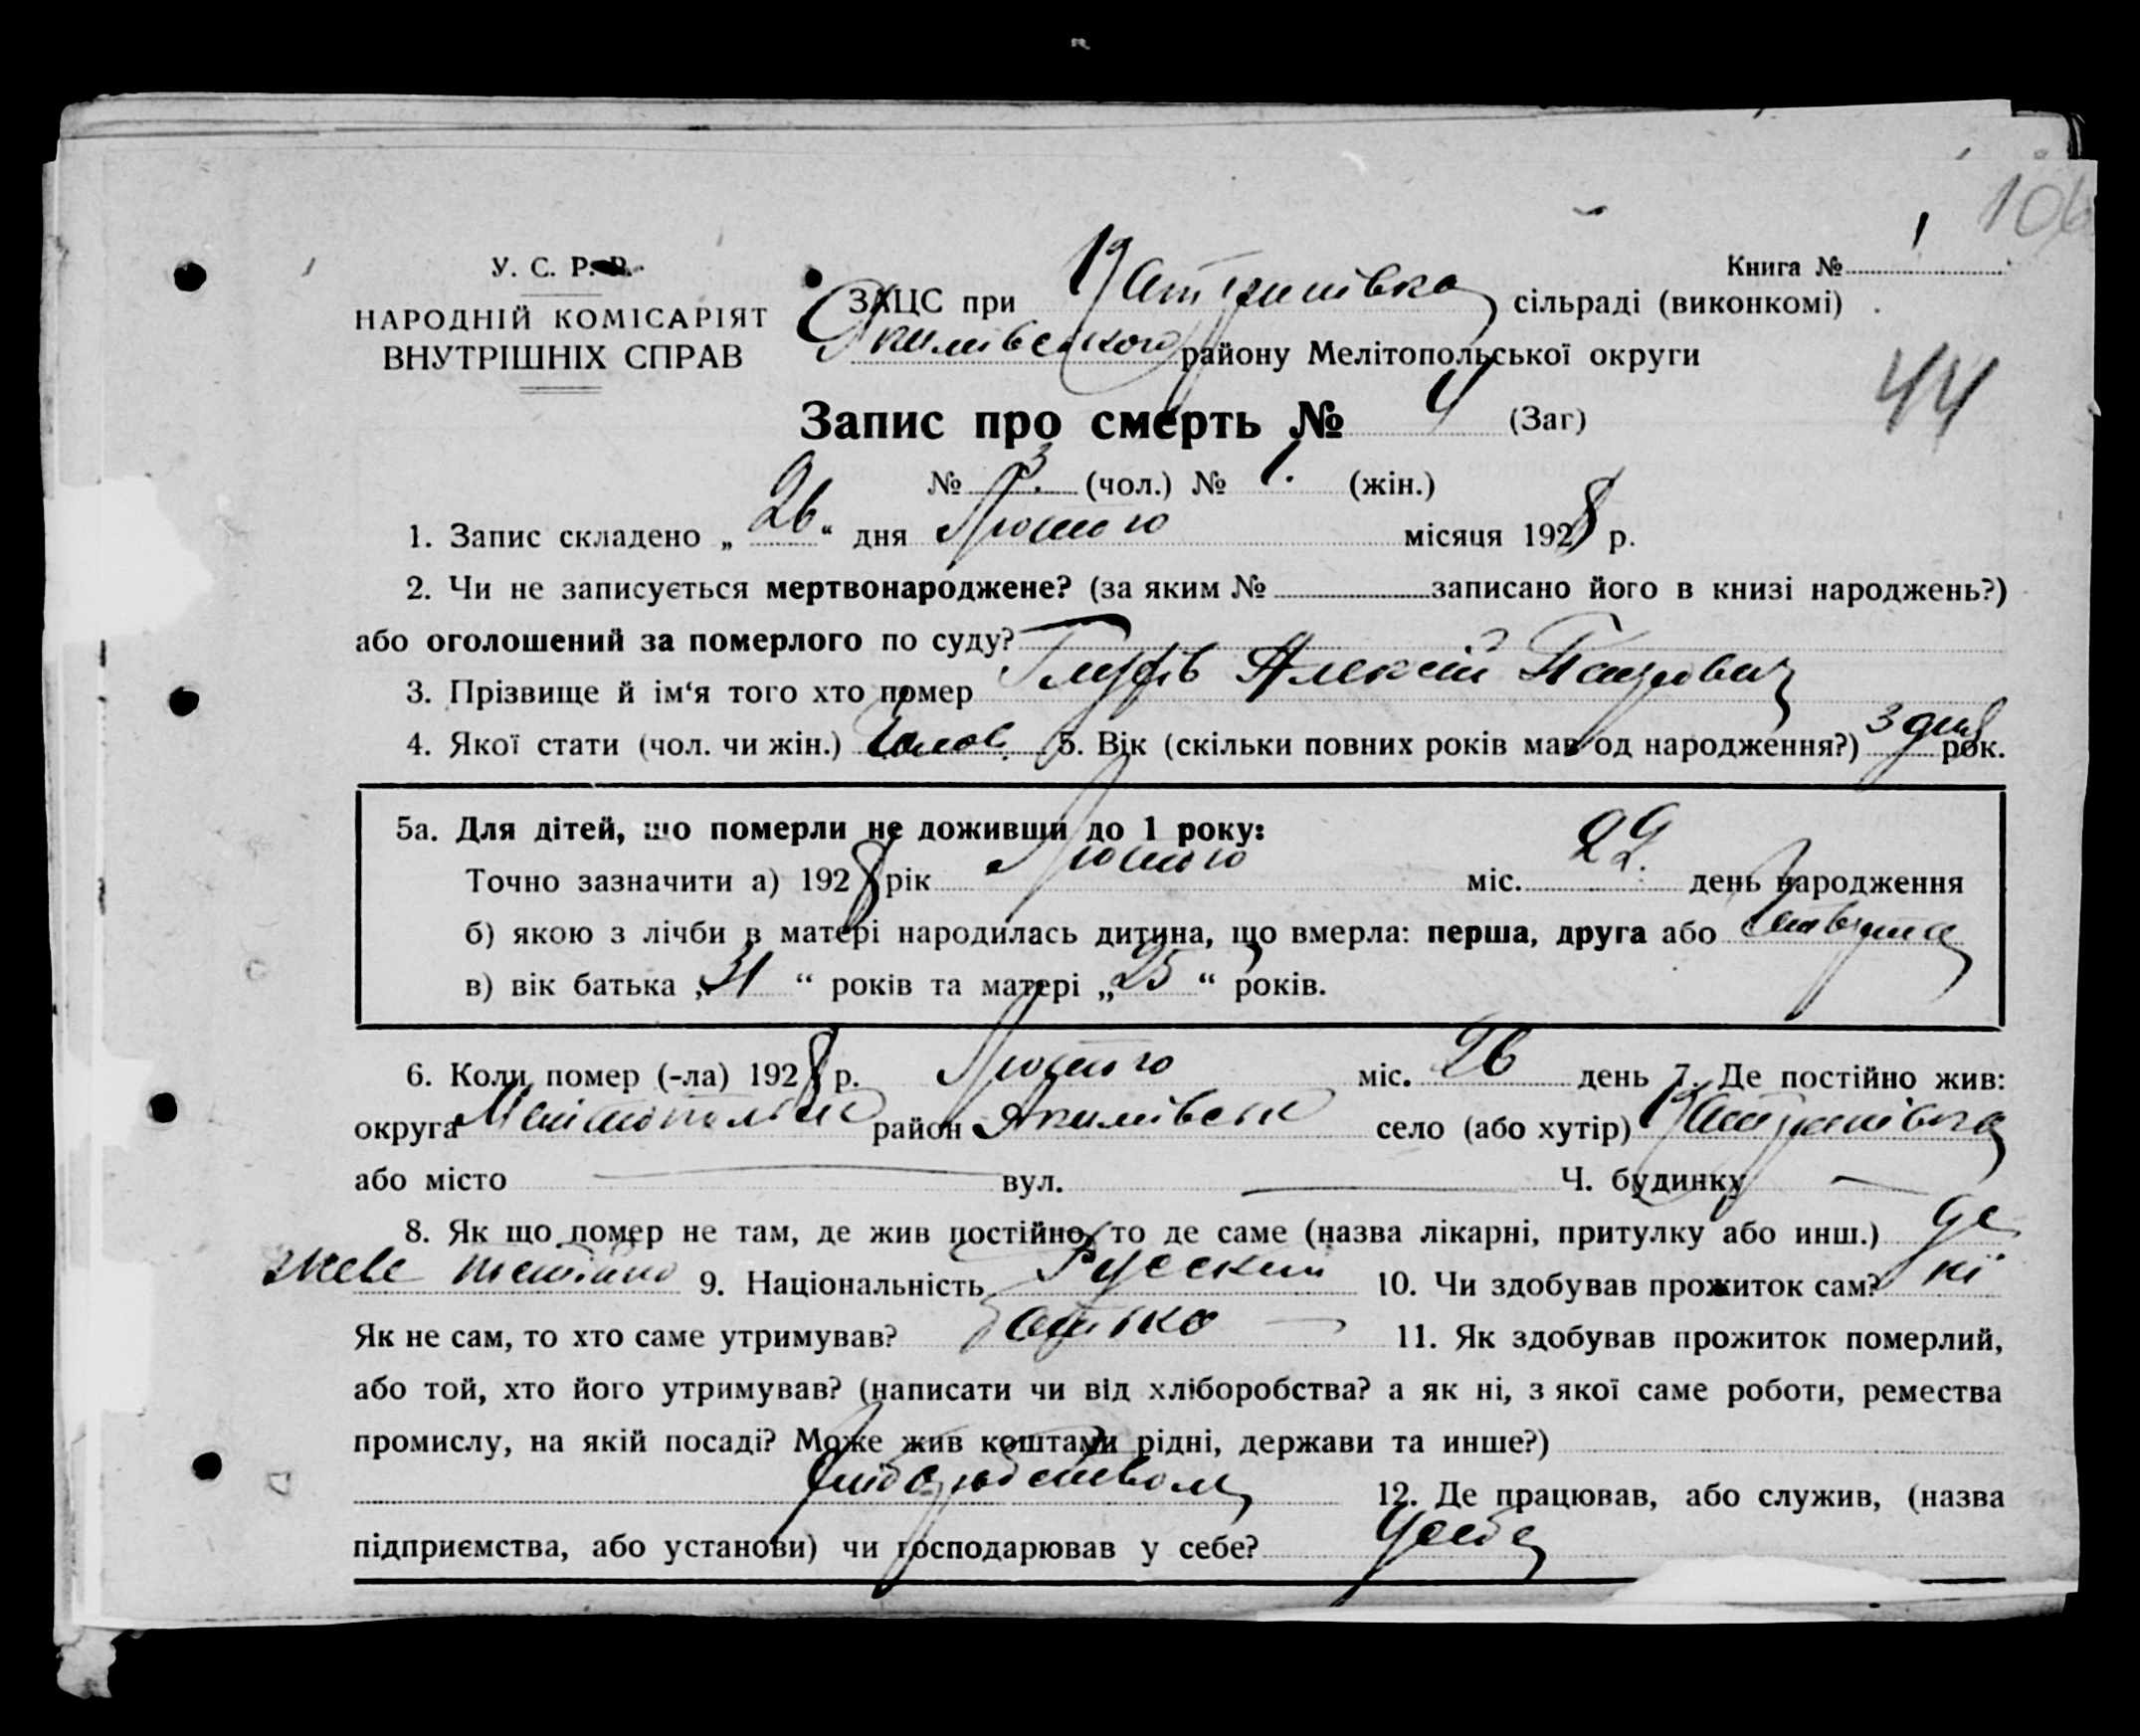 106
У. С. Р. Р.
Книга № 1
НАРОДНІЙ КОМІСАРІЯТ
ВНУТРІШНІХ СПРАВ
ЗАЦС при сільраді (виконкомі)
Якимівського району Мелітопольської округи
44
Запис про смерть № 4 (Заг)
№ 3. (чол.) № 1. (жін.)
1. Запис складено „ 26 “ дня Лютого місяця 1928 р.
2. Чи не записується мертвонароджене? (за яким № записано його в книзі народжень?)
або оголошений за померлого по суду?
3. Прізвище й ім‘я того хто помер Алексій
4. Якої стати (чол. чи жін.) Чолов. 5. Вік (скільки повних років мав од народження?) 3 дня рок.
5а. Для дітей, що померли не доживши до 1 року:
Точно зазначити а) 1928 рік Лютого міс. 22. день народження
б) якою з лічби в матері народилась дитина, що вмерла: перша, друга або
в) вік батька „ 31 “ років та матері „ 25 “ років.
6. Коли помер (-ла) 1928 р. Лютого міс. 26 день 7. Де постійно жив:
округа район Якимівськ село (або хутір)
або місто — вул. — Ч. будинку —
8. Як що помер не там, де жив постійно, то де саме (назва лікарні, притулку або инш.) де
живе 9. Національність Русский 10. Чи здобував прожиток сам? ні
Як не сам, то хто саме утримував? батько — 11. Як здобував прожиток померлий,
або той, хто його утримував? (написати чи від хліборобства? а як ні, з якої саме роботи, ремества
промислу, на якій посаді? Може жив коштами рідні, держави та инше?)
хліборобством 12. Де працював, або служив, (назва
підприємства, або установи) чи господарював у себе? у себе